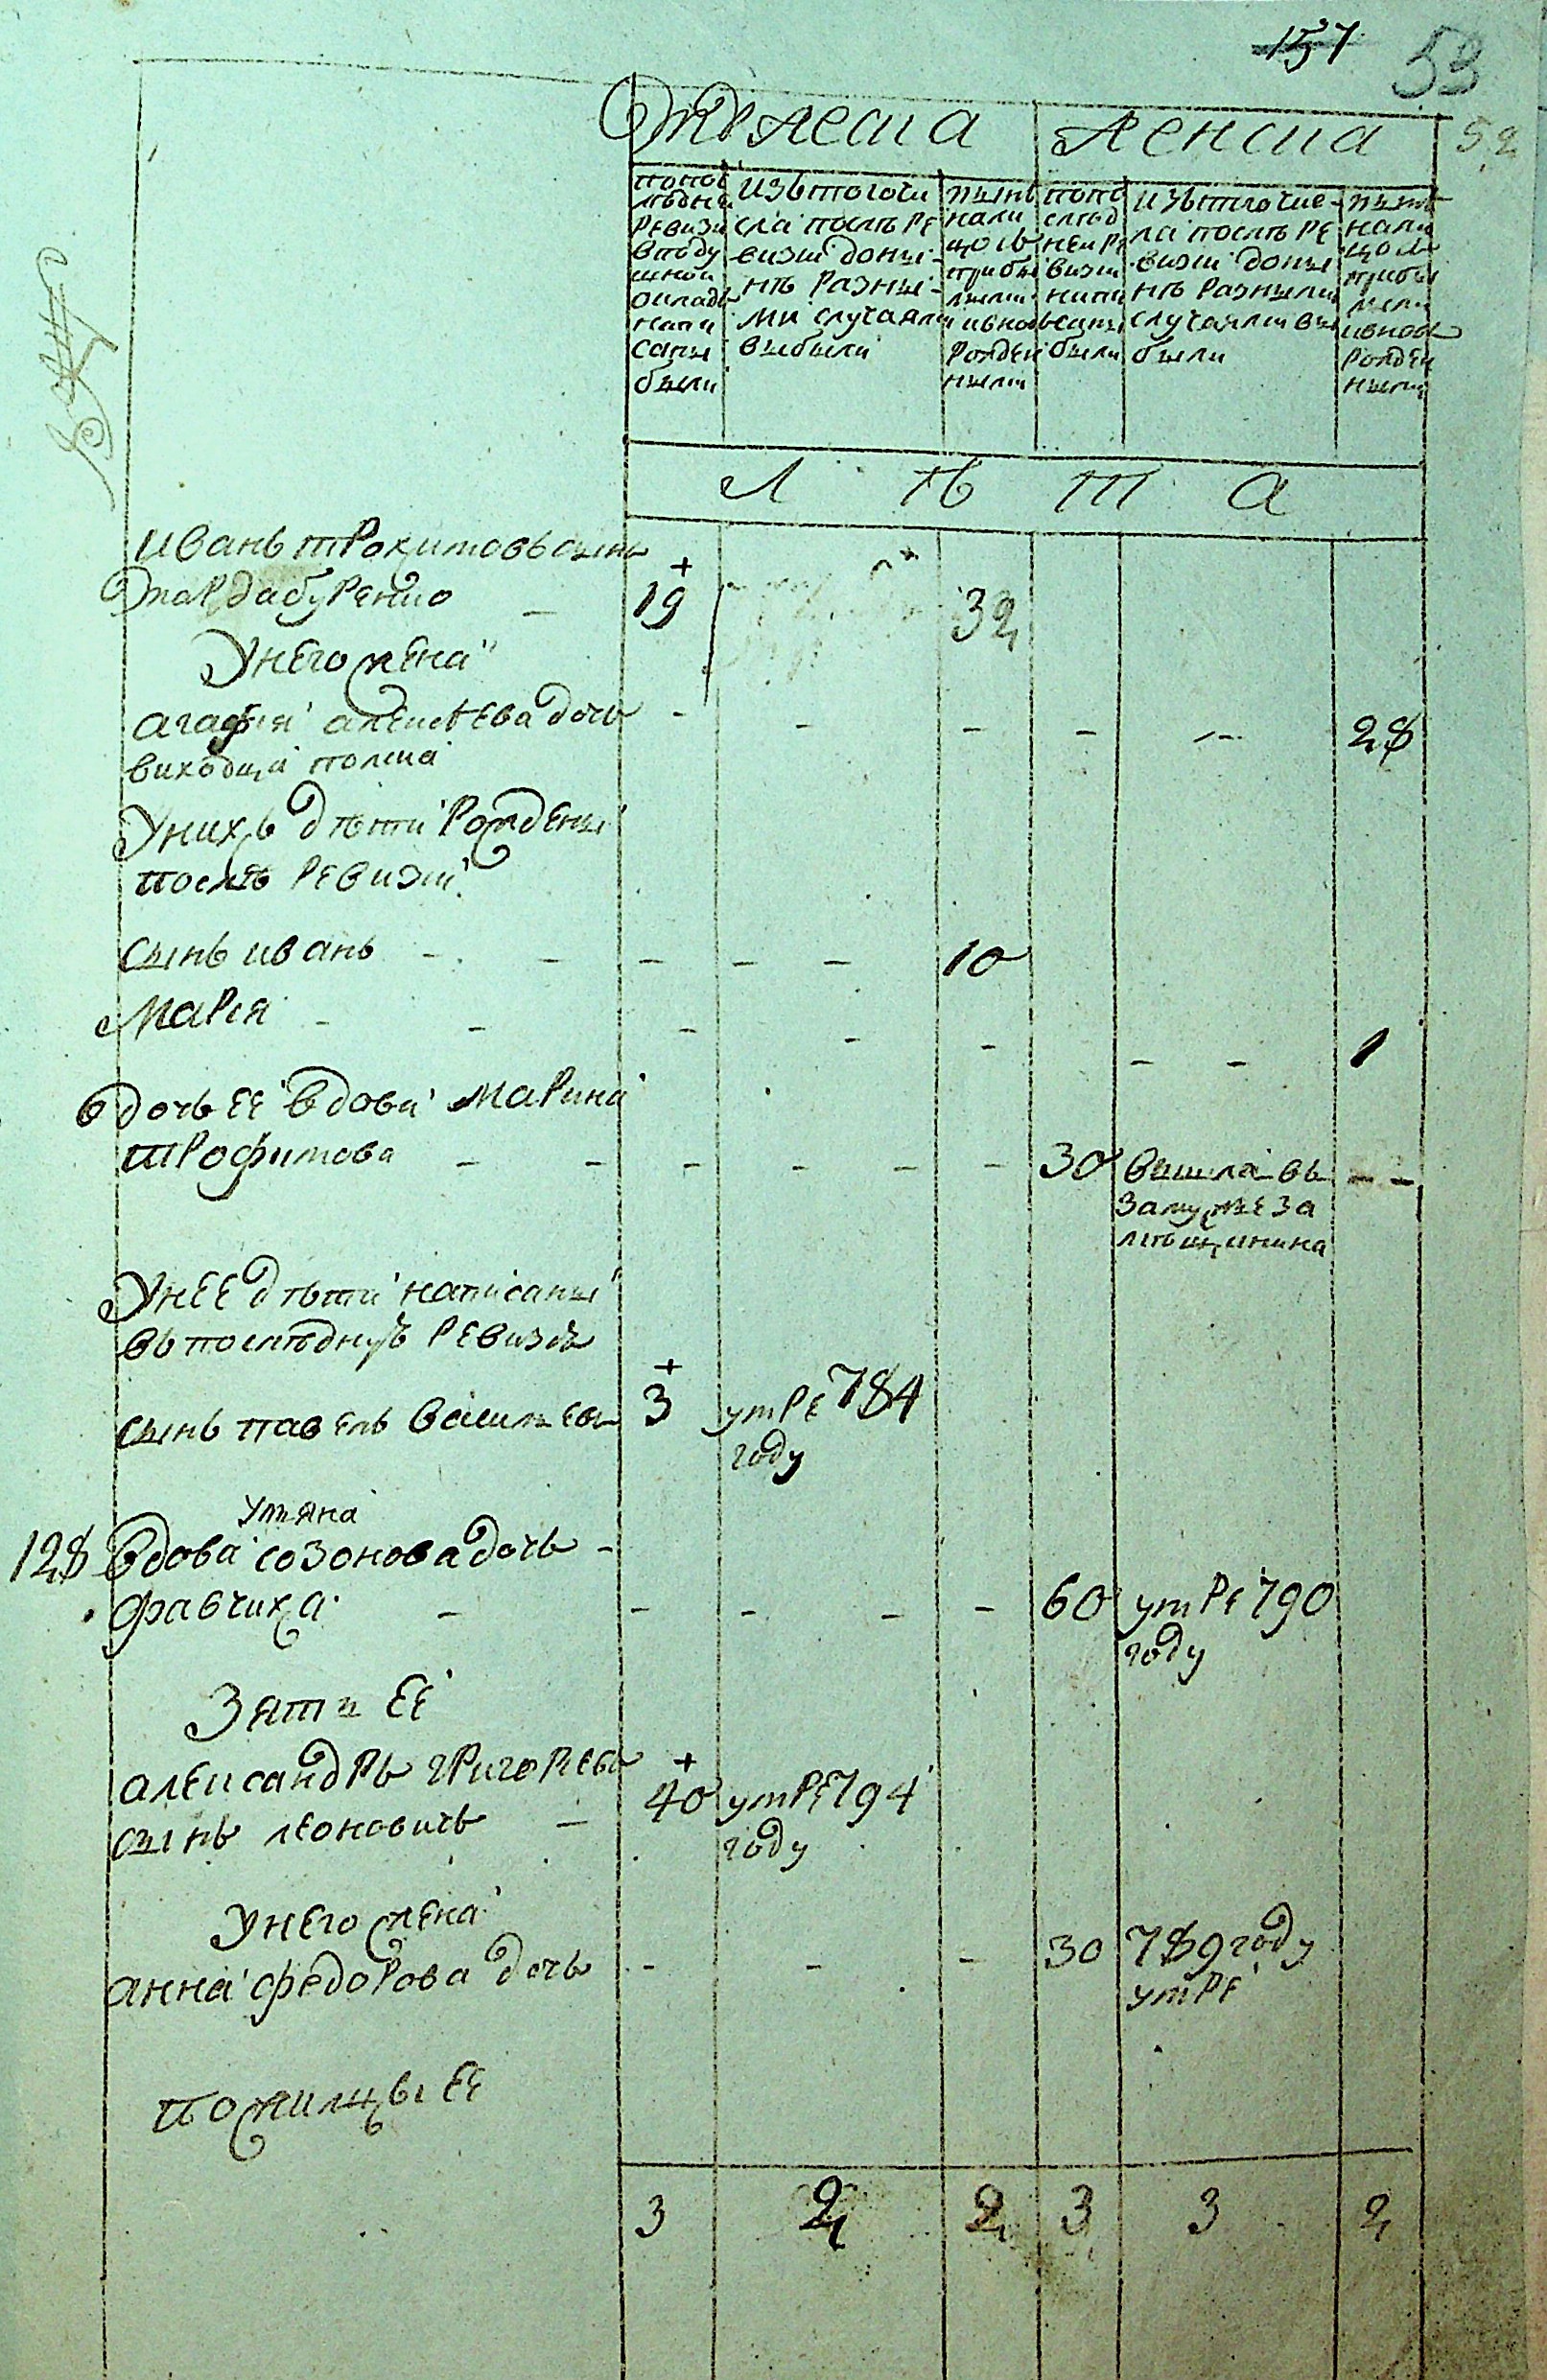 157
53
52
Мужеска женска
попос лѣдне ревизи в поду шной окладъ напи саны были
изъ того чи сла послѣ ре визии до ны нѣ разны ми случаями выбыли
нынѣ нали цо съ прибы лыми и вновь рожден ными
по по слѣд ней ре визии напи саны были
изъ того чис ла послѣ ре визии до ны нѣ разными случаями вы были
нынѣ нали цо съ прибы лыми и вновь рожден ными
Л ѣ т а
иванъ трохимовъ сынъ
тардабуренко 19 32
У него жена
агафия алексѣева дочь 28
У нихъ дѣти рожденны
послѣ ревизии
сынъ иванъ 10
Мария 1
6 дочь ее вдова Марина
трофимова 30 вышла въ
замуже за
У нее дѣти написаны
въ последную ревизию
сынъ павелъ васильевъ 3 умре 784
году
ульяна
128 Вдова созонова дочь
фавчиха 60 умре 790
году
Зять ее
александръ григорьевъ
сынъ леоновичь 40 умре 794
году
У него жена
анна федорова дочь 30 789 году
умре
пожилцы ее
3 2 2 3 3 2